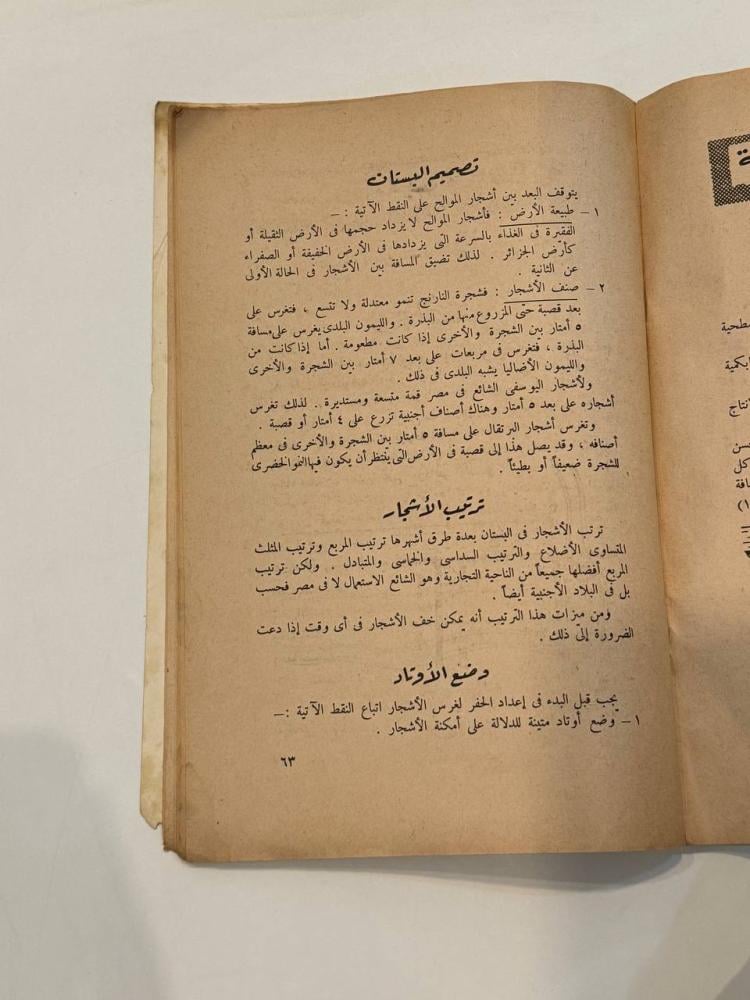 تصميم البستان
يتوقف البعد بين أشجار الموالح على النقط الآتية : —
١ — طبيعة الأرض : فأشجار الموالح لا يزداد حجمها فى الأرض الثقيلة أو
الفقيرة فى الغذاء بالسرعة التى يزدادها فى الأرض الخفيفة أو الصفراء
كأرض الجزائر . لذلك تضيق المسافة بين الأشجار فى الحالة الأولى
عن الثانية .
٢ — صنف الأشجار : فشجرة النارنج تنمو معتدلة ولا تتسع ، فتغرس على
بعد قصبة حتى المزروع منها من البذرة . والليمون البلدى يغرس على مسافة
٥ أمتار بين الشجرة والأخرى إذا كانت مطعومة . أما إذا كانت من
البذرة ، فتغرس فى مربعات على بعد ٧ أمتار بين الشجرة والأخرى
والليمون الأضاليا يشبه البلدى فى ذلك .
ولأشجار اليوسفى الشائع فى مصر قمة متسعة ومستديرة . لذلك تغرس
أشجاره على بعد ٥ أمتار وهناك أصناف أجنبية تزرع على ٤ أمتار أو قصبة .
وتغرس أشجار البرتقال على مسافة ٥ أمتار بين الشجرة والأخرى فى معظم
أصنافه ، وقد يصل هذا إلى قصبة فى الأرض التى ينتظر أن يكون فيها النمو الخضرى
للشجرة ضعيفاً أو بطيئاً .
ترتيب الأشجار
ترتب الأشجار فى البستان بعدة طرق أشهرها ترتيب المربع وترتيب المثلث
المتساوى الأضلاع والترتيب السداسى والخماسى والمتبادل . ولكن ترتيب
المربع أفضلها جميعاً من الناحية التجارية وهو الشائع الاستعمال لا فى مصر فحسب
بل فى البلاد الأجنبية أيضاً .
ومن ميزات هذا الترتيب أنه يمكن خف الأشجار فى أى وقت إذا دعت
الضرورة إلى ذلك .
وضع الأوتاد
يجب قبل البدء فى إعداد الحفر لغرس الأشجار اتباع النقط الآتية : —
١ — وضع أوتاد متينة للدلالة على أمكنة الأشجار .
٦٣